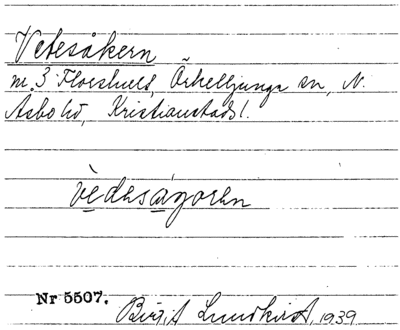 Vetesåkern
nr. 3 Floeshult, Örkelljunga sn, N.
Åsbo hd, Kristianstads l.
vèdesàgoren
Nr 5507.
Birgit Lundkvist, 1939